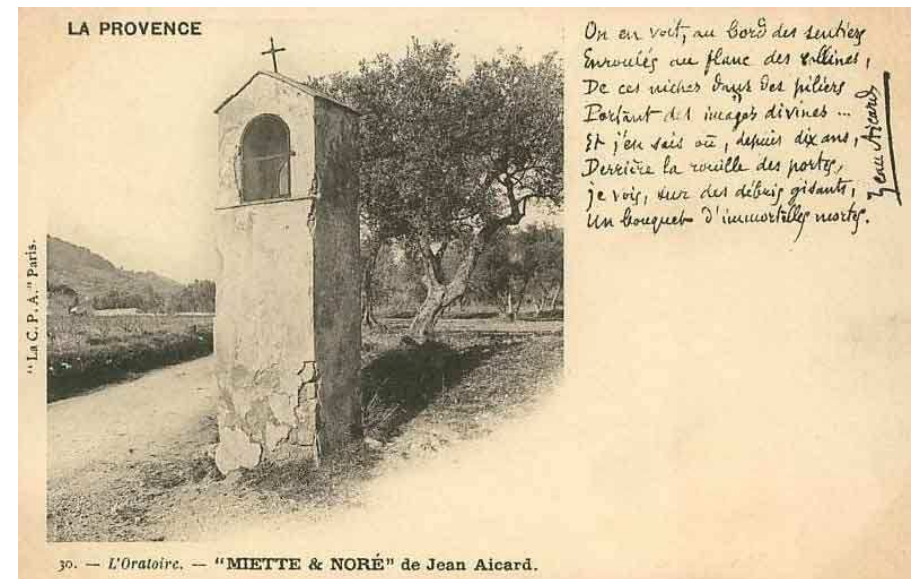 LA PROVENCE
On en voit, au bord des sentiers
Enroulés au flanc des collines,
De ces niches dans des piliers
Portant des images divines ...
Et j'en sais où, depuis dix ans,
Derrière la rouille des portes,
je vois, sur des débris gisants,
Un bouquet d'immortelles mortes.
Jean Aicard
"La C. P. A." Paris.
30. — L'Oratoire. — "MIETTE & NORÉ" de Jean Aicard.